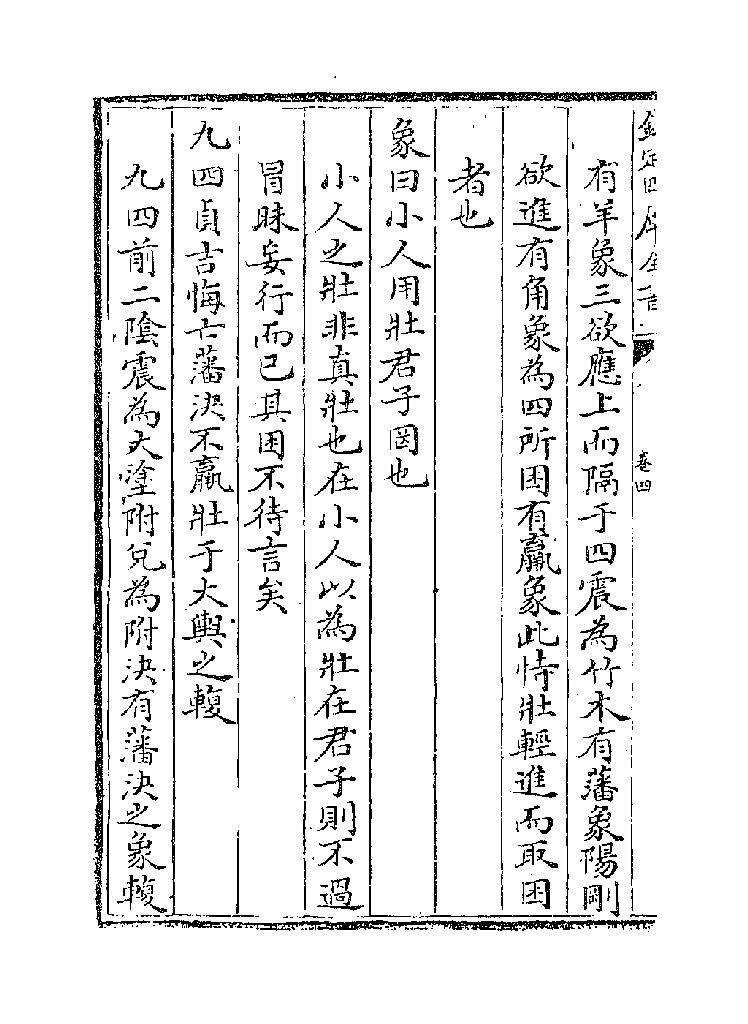 欽定四庫全書
卷四
有羊象三欲應上而隔于四震為竹木有藩象陽剛
欲進有角象為四所困有羸象此恃壯輕進而取困
者也
象曰小人用壯君子罔也
小人之壯非真壯也在小人以為壯在君子則不過
冒昧妄行而已其困不待言矣
九四貞吉悔亡藩決不羸壯于大輿之輹
九四前二陰震為大塗附兌為附决有藩決之象輹